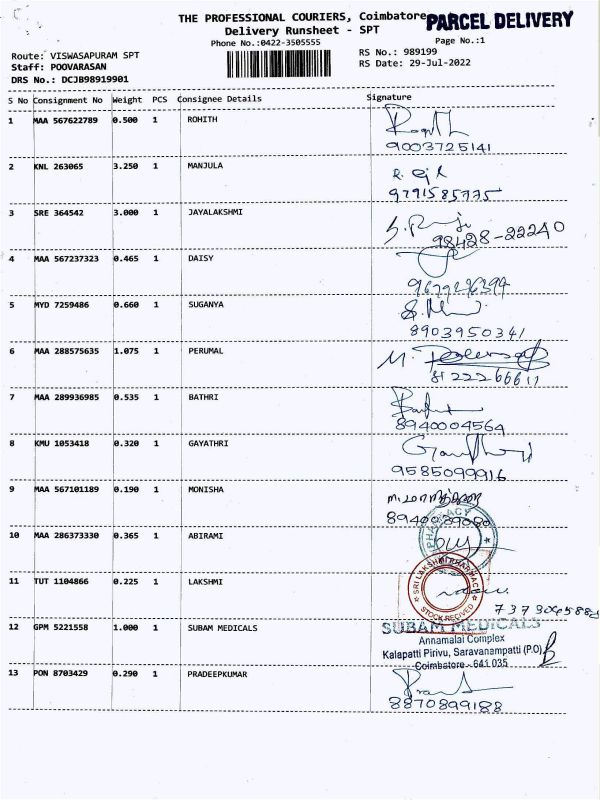 THE PROFESSIONAL COURIERS, Coimbatore
PARCEL DELIVERY
Delivery Runsheet - SPT
Phone No.:0422-3505555
Page No.:1
Route: VISWASAPURAM SPT
RS No.: 989199
Staff: POOVARASAN
RS Date: 29-Jul-2022
DRS No.: DCJB98919901
S No Consignment No Weight PCS Consignee Details Signature
1 MAA 567622789 0.500 1 ROHITH
9003725141
2 KNL 263065 3.250 1 MANJULA
9791585775
3 SRE 364542 3.000 1 JAYALAKSHMI
98428-22240
4 MAA 567237323 0.465 1 DAISY
5 MYD 7259486 0.660 1 SUGANYA
8903950341
6 MAA 288575635 1.075 1 PERUMAL
8122266611
7 MAA 289936985 0.535 1 BATHRI
8940004564
8 KMU 1053418 0.320 1 GAYATHRI
9585099916
9 MAA 567101189 0.190 1 MONISHA
10 MAA 286373330 0.365 1 ABIRAMI
PHARMACY
11 TUT 1104866 0.225 1 LAKSHMI
SRI LAKSHMI PHARMACY
STOCK RECIVED
12 GPM 5221558 1.000 1 SUBAM MEDICALS
SUBAM MEDICALS
Annamalai Complex
Kalapatti Pirivu, Saravanampatti (P.O)
Coimbatore - 641 035
13 PON 8703429 0.290 1 PRADEEPKUMAR
8870899188